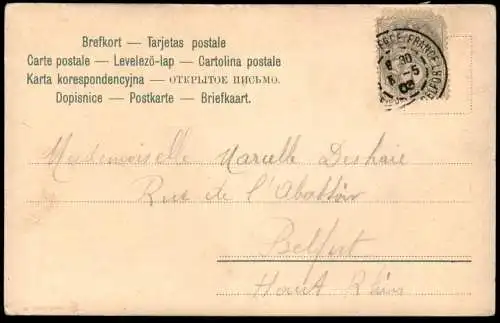 Brefkort — Tarjetas postale
Carte postale — Levelező-lap — Cartolina postale
Karta korespondencyjna — ОТКРЫТОЕ ПИСЬМО.
Dopisnice — Postkarte — Briefkaart.
8 30
5
03
Mademoiselle Marcelle Deshaie
Rue de l'Abattoir
Belfort
Haut Rhin